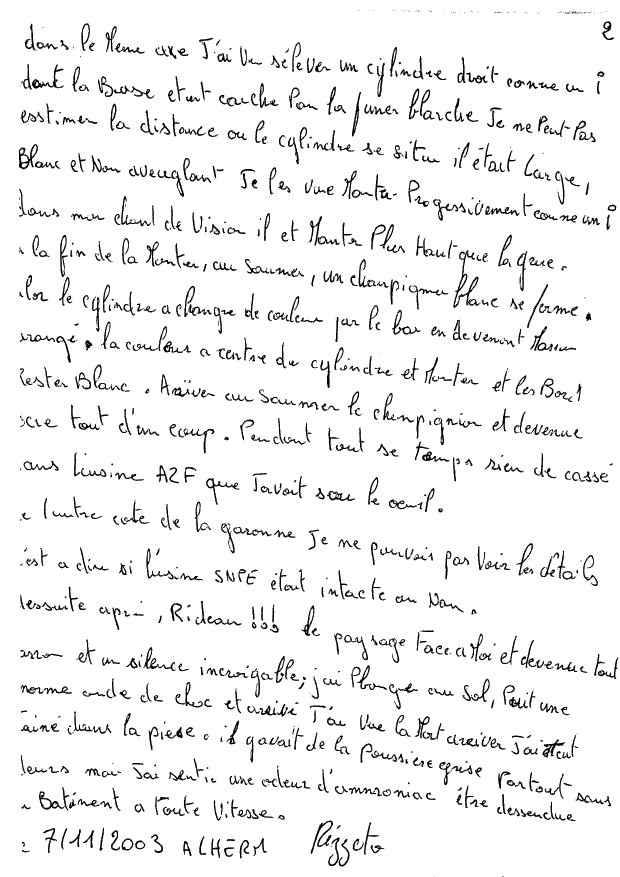 2
dans le Meme axe J'ai Vu s'élever un cylindre droit comme un i
dont la Base etait caché Par la fumer blanche Je ne Peut Pas
esstimer la distance ou le cylindre se situ il était Large,
Blanc et Non aveuglant Je les vue Monter Progressivement comme un i
dans mon chant de Vision il et Monter Plus Haut que la grue.
a la fin de la Monter, au Saumer, un champigner blanc se forme.
lor le cylindre a changé de couleur par le bas en devenent Marron
orangé, la couleur a centre du cylindre et Monter et les Bord
rester Blanc. Arriver au Saummer le chempignion et devenue
ocre tout d'un coup. Pendent tout se temps rien de cassé
ans L'usine AZF que J'avoit sou le oeuil.
e l'autre cote de la garonne Je ne pouvois pas Voir les détails
'est a dire si l'usine SNPE étoit intacte ou Non.
dessuite aprè, Rideau !!! le paysage Face a Moi et devenue tout
et un silence incroigable; j'ai Plonger au Sol, Puit une
norme onde de choc et arrivé J'au Vue la Mort arriver J'ai était
ainé dans la piese. il y avait de la poussiere grise Partout sans
leurs mai J'ai sentie une odeur d'amnroniac être dessendue
Batiment a Toute Vitesse.
7/11/2003 ALHERM Rizzeto